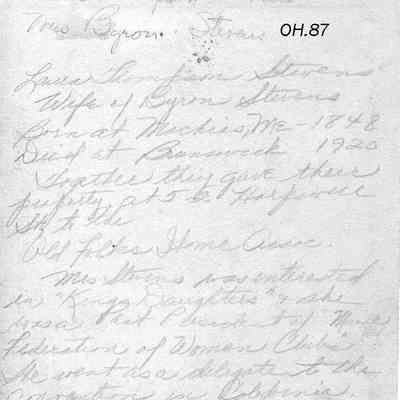 Mrs Byron Stevens OH.87
Laura Thompson Stevens
Wife of Byron Stevens
Born at Machias, Me - 1848
Died at Brunswick 1920
Together they gave their
property at 52 Harpswell
St. to the
Old Folks Home Assoc.
Mrs Stevens was interested
in "Kings Daughters" & she
was a Past President of
Federation of Women Clubs
She went as a delegate to the
convention in California.